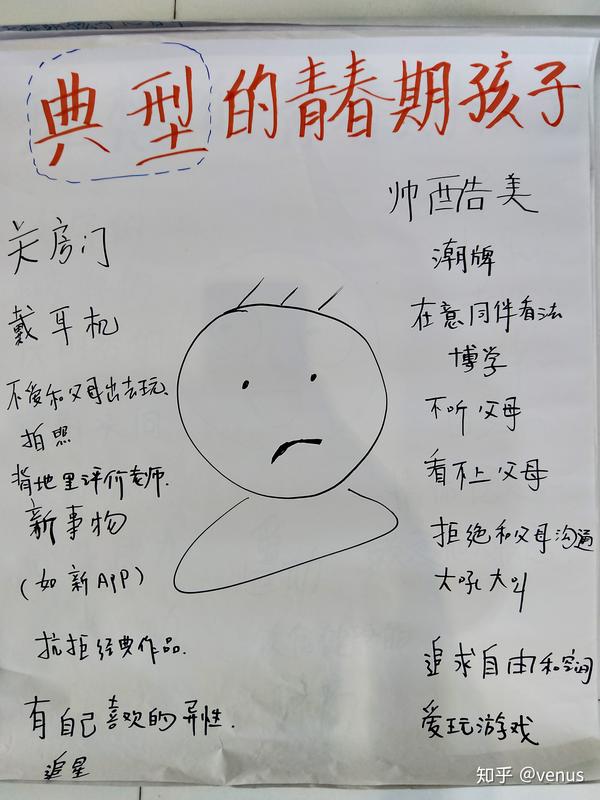 典型的青春期孩子
关房门
戴耳机
不爱和父母出去玩、
拍照
背地里评价老师.
新事物
(如新APP)
抗拒经典作品.
有自己喜欢的异性.
追星
帅酷美
潮牌
在意同伴看法
博学
不听父母
看不上父母
拒绝和父母沟通
大吼大叫
追求自由和空间
爱玩游戏
知乎 @venus